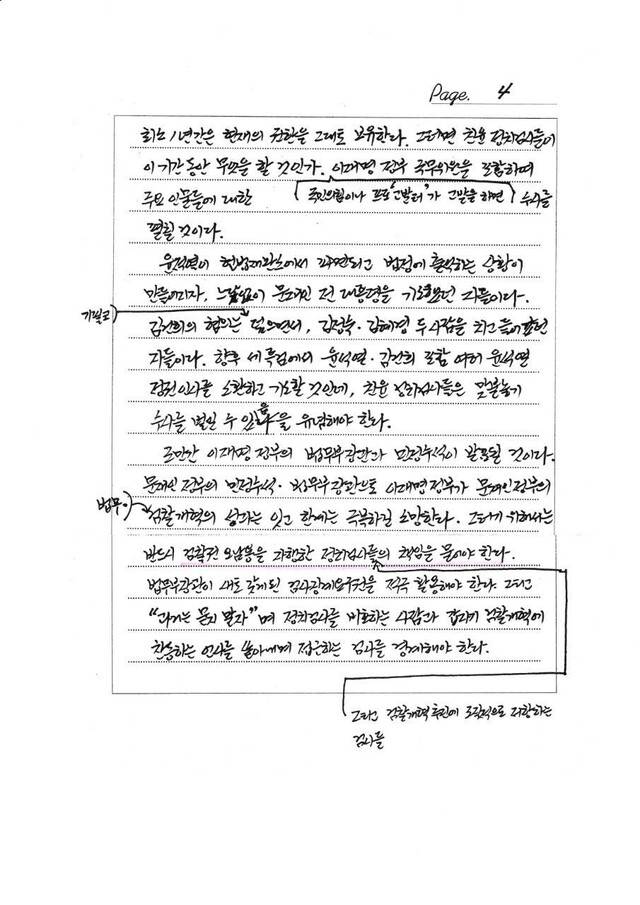 Page. 4
최소 1년간은 현재의 권한을 그대로 보유한다. 그러면 친윤 정치검사들이
이 기간 동안 무엇을 할 것인가. 이재명 정부 국무위원을 포함하여
주요 인물들에 대한 (국민의힘이나 프로'고발러'가 고발을 하면) 수사를
펼칠 것이다.
윤석열이 헌법재판소에서 파면되고 법정에 출석하는 상황이
만들어지자, 느닷없이 문재인 전 대통령을 기소했던 자들이다.
기필코
김건희의 혐의는 덮으면서, 김정숙·김혜경 두 사람을 치고 들어갔던
자들이다. 향후 세 특검에서 윤석열·김건희 포함 여러 윤석열
정권 인사를 소환하고 기소할 것인데, 친윤 정치검사들은 맞불놓기
수사를 벌일 수 있음을 유념해야 한다.
조만간 이재명 정부의 법무부장관과 민정수석이 발표될 것이다.
문재인 정부의 민정수석·법무부장관으로 이재명 정부가 문재인 정부의
법무·
검찰개혁의 성과는 잇고 한계는 극복하길 소망한다. 그러기 위해서는
반드시 검찰권 오남용을 자행한 정치검사들의 책임을 물어야 한다.
법무부장관이 새로 갖게 된 검사징계요구권을 적극 활용해야 한다. 그리고
"과거는 묻지 말자"며 정치검사를 비호하는 사람과 갑자기 검찰개혁에
찬동하는 인사를 쏟아내며 접근하는 검사를 경계해야 한다.
그리고 검찰개혁 추진에 조직적으로 저항하는
검사들